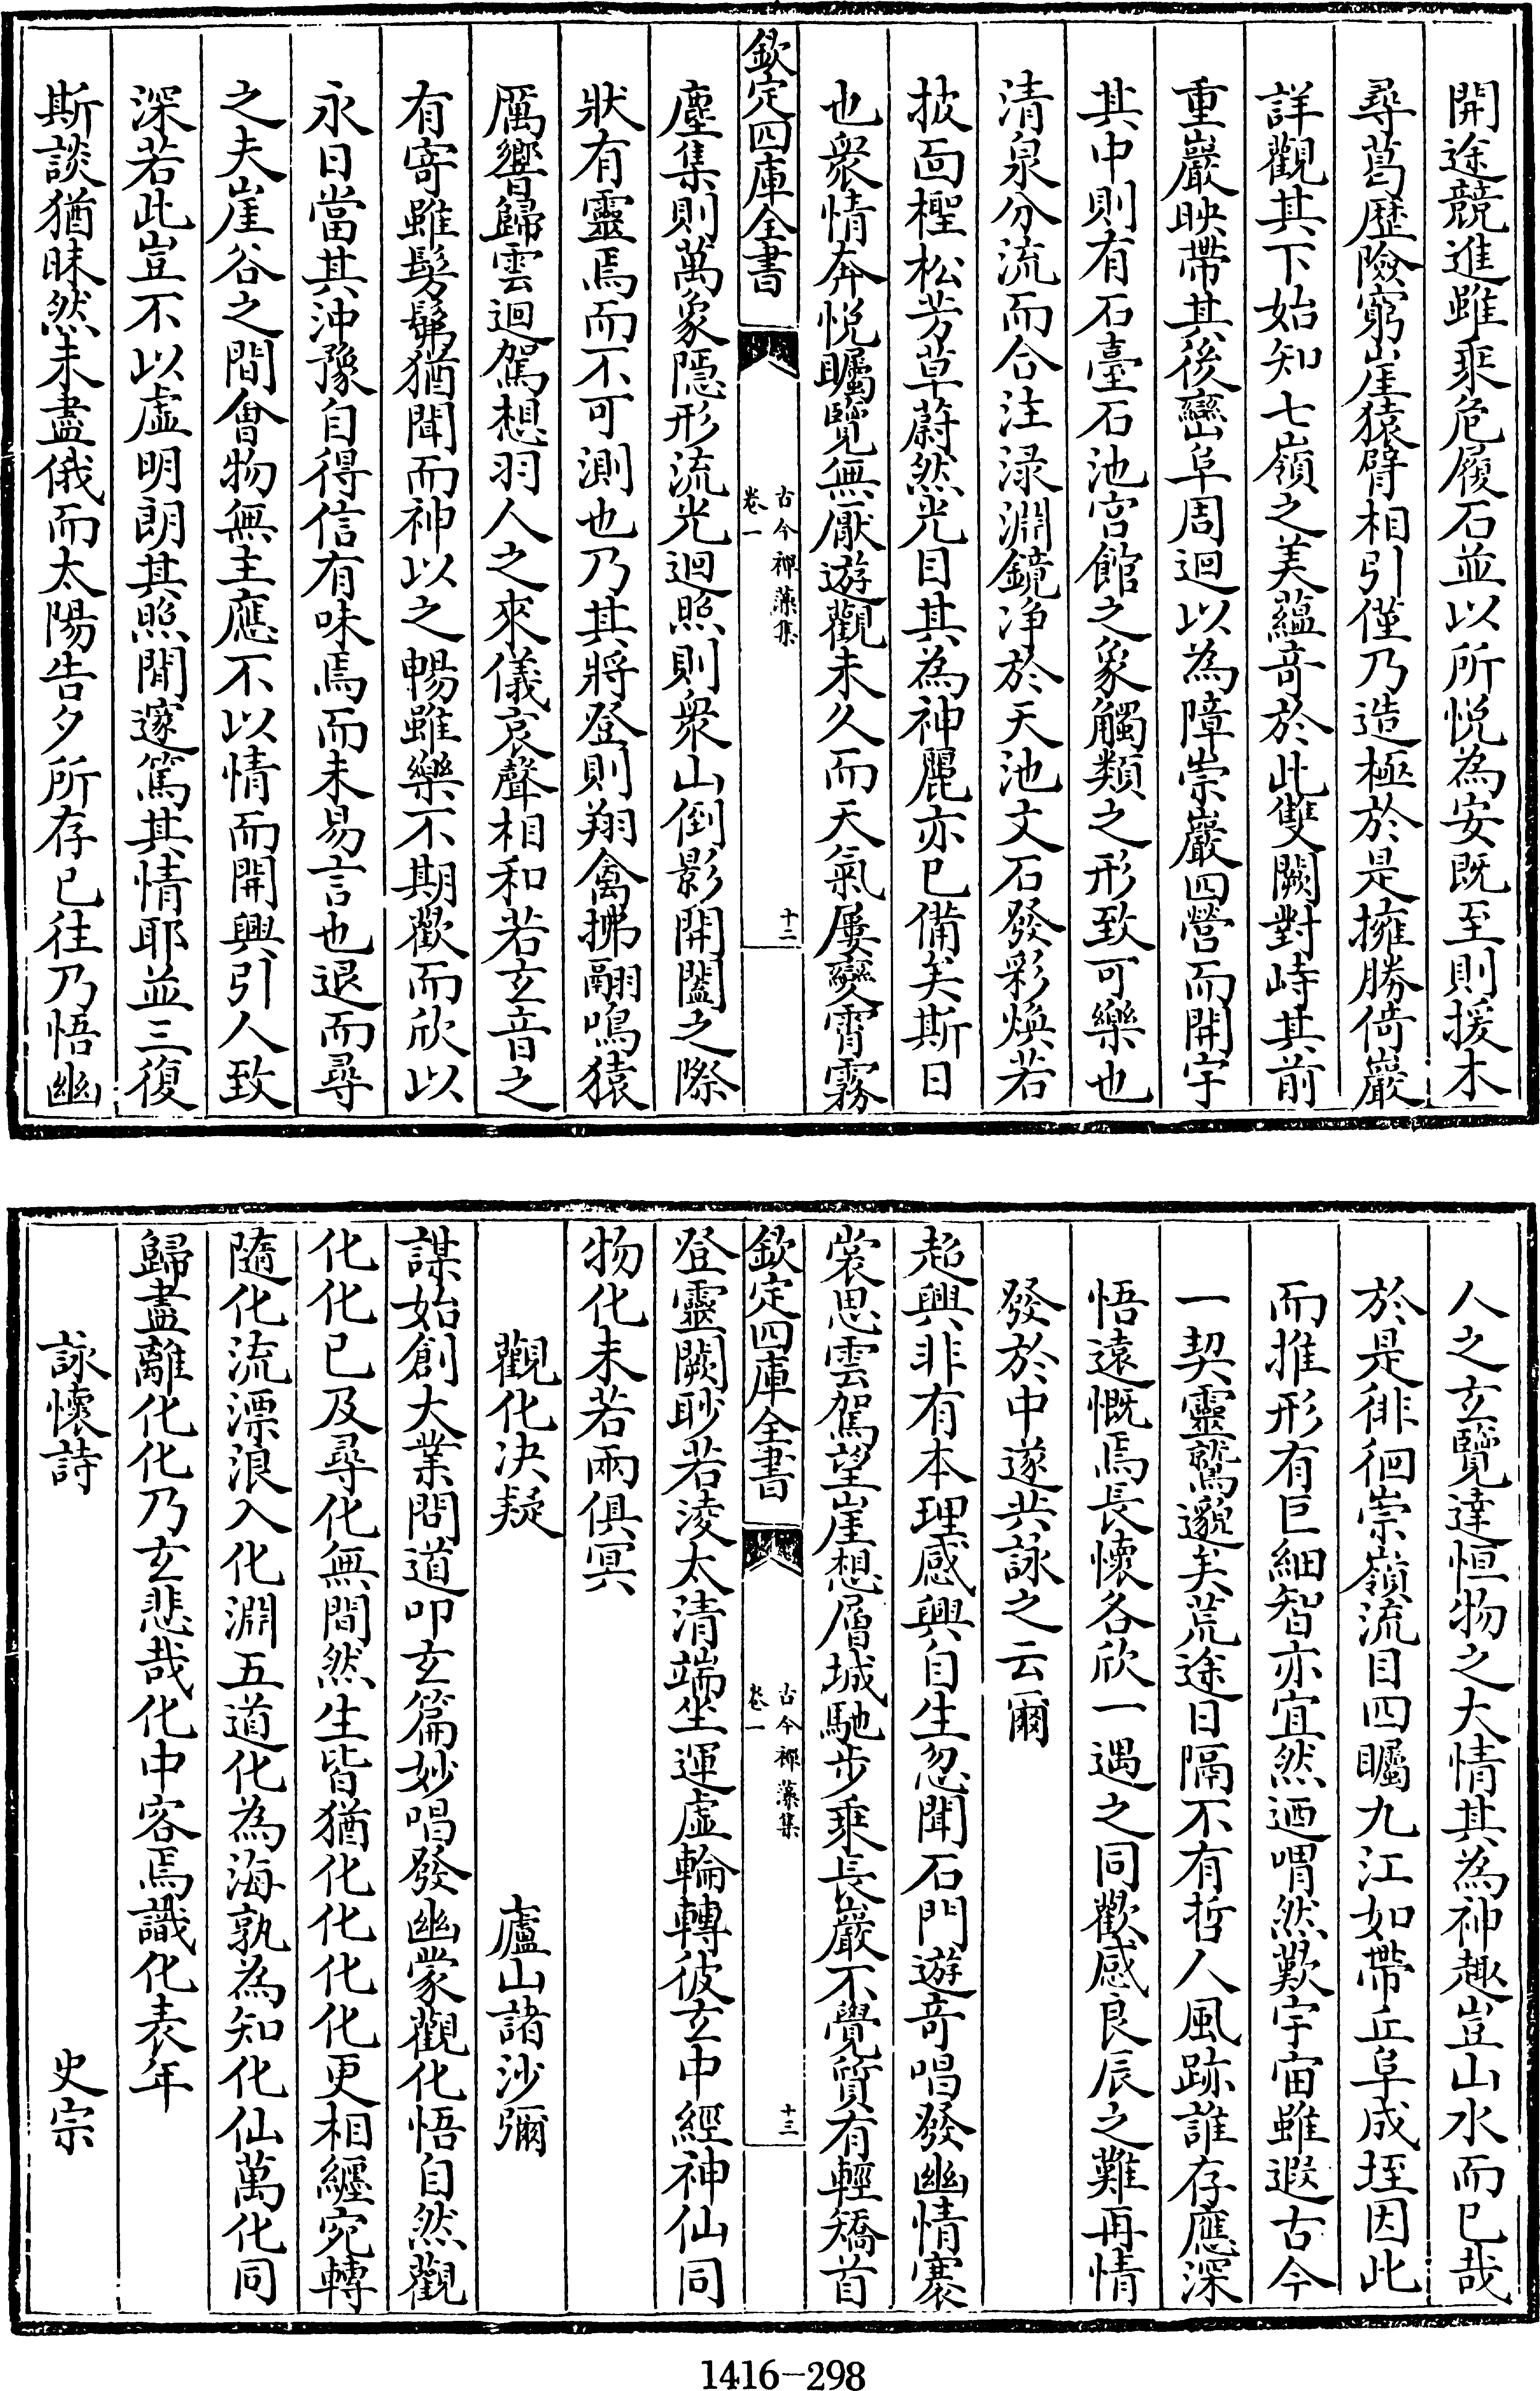 開途競進雖乘危履石並以所悅為安既至則援木
尋葛歷險窮崖猿臂相引僅乃造極於是擁勝倚巖
詳觀其下始知七嶺之美蘊奇於此雙闕對峙其前
重巖映帶其後巒阜周迴以為障崇巖四營而開宇
其中則有石臺石池宮館之象觸類之形致可樂也
清泉分流而合注渌淵鏡净於天池文石發彩煥若
披面檉松芳草蔚然光目其為神麗亦已備矣斯日
也衆情奔悅矚覽無厭遊觀未久而天氣屢變霄霧
欽定四庫全書
古今禪藻集
卷一
十二
塵集則萬象隱形流光迴照則衆山倒影開闔之際
狀有靈焉而不可測也乃其將登則翔禽拂翮鳴猿
厲響歸雲迴駕想羽人之來儀哀聲相和若玄音之
有寄雖髣髴猶聞而神以之暢雖樂不期歡而欣以
永日當其沖豫自得信有味焉而未易言也退而尋
之夫崖谷之間會物無主應不以情而開興引人致
深若此豈不以虛明朗其照閒邃篤其情耶並三復
斯談猶昧然未盡俄而太陽告夕所存已往乃悟幽
人之玄覽達恒物之大情其為神趣豈山水而已哉
於是徘徊崇嶺流目四矚九江如帶丘阜成垤因此
而推形有巨細智亦宜然迺喟然歎宇宙雖遐古今
一契靈鷲邈矣荒途日隔不有哲人風跡誰存應深
悟遠慨焉長懷各欣一遇之同歡感良辰之難再情
發於中遂共詠之云爾
超興非有本理感興自生忽聞石門遊奇唱發幽情褰
裳思雲駕望崖想層城馳步乘長巖不覺質有輕矯首
欽定四庫全書
古今禪藻集
卷一
十三
登靈闕眇若淩太清端坐運虛輪轉彼玄中經神仙同
物化未若兩俱冥
觀化決疑 廬山諸沙彌
謀始創大業問道叩玄篇妙唱發幽蒙觀化悟自然觀
化化已及尋化無間然生皆猶化化化化更相纏宛轉
隨化流漂浪入化淵五道化為海孰為知化仙萬化同
歸盡離化化乃玄悲哉化中客焉識化表年
詠懷詩 史宗
1416-298